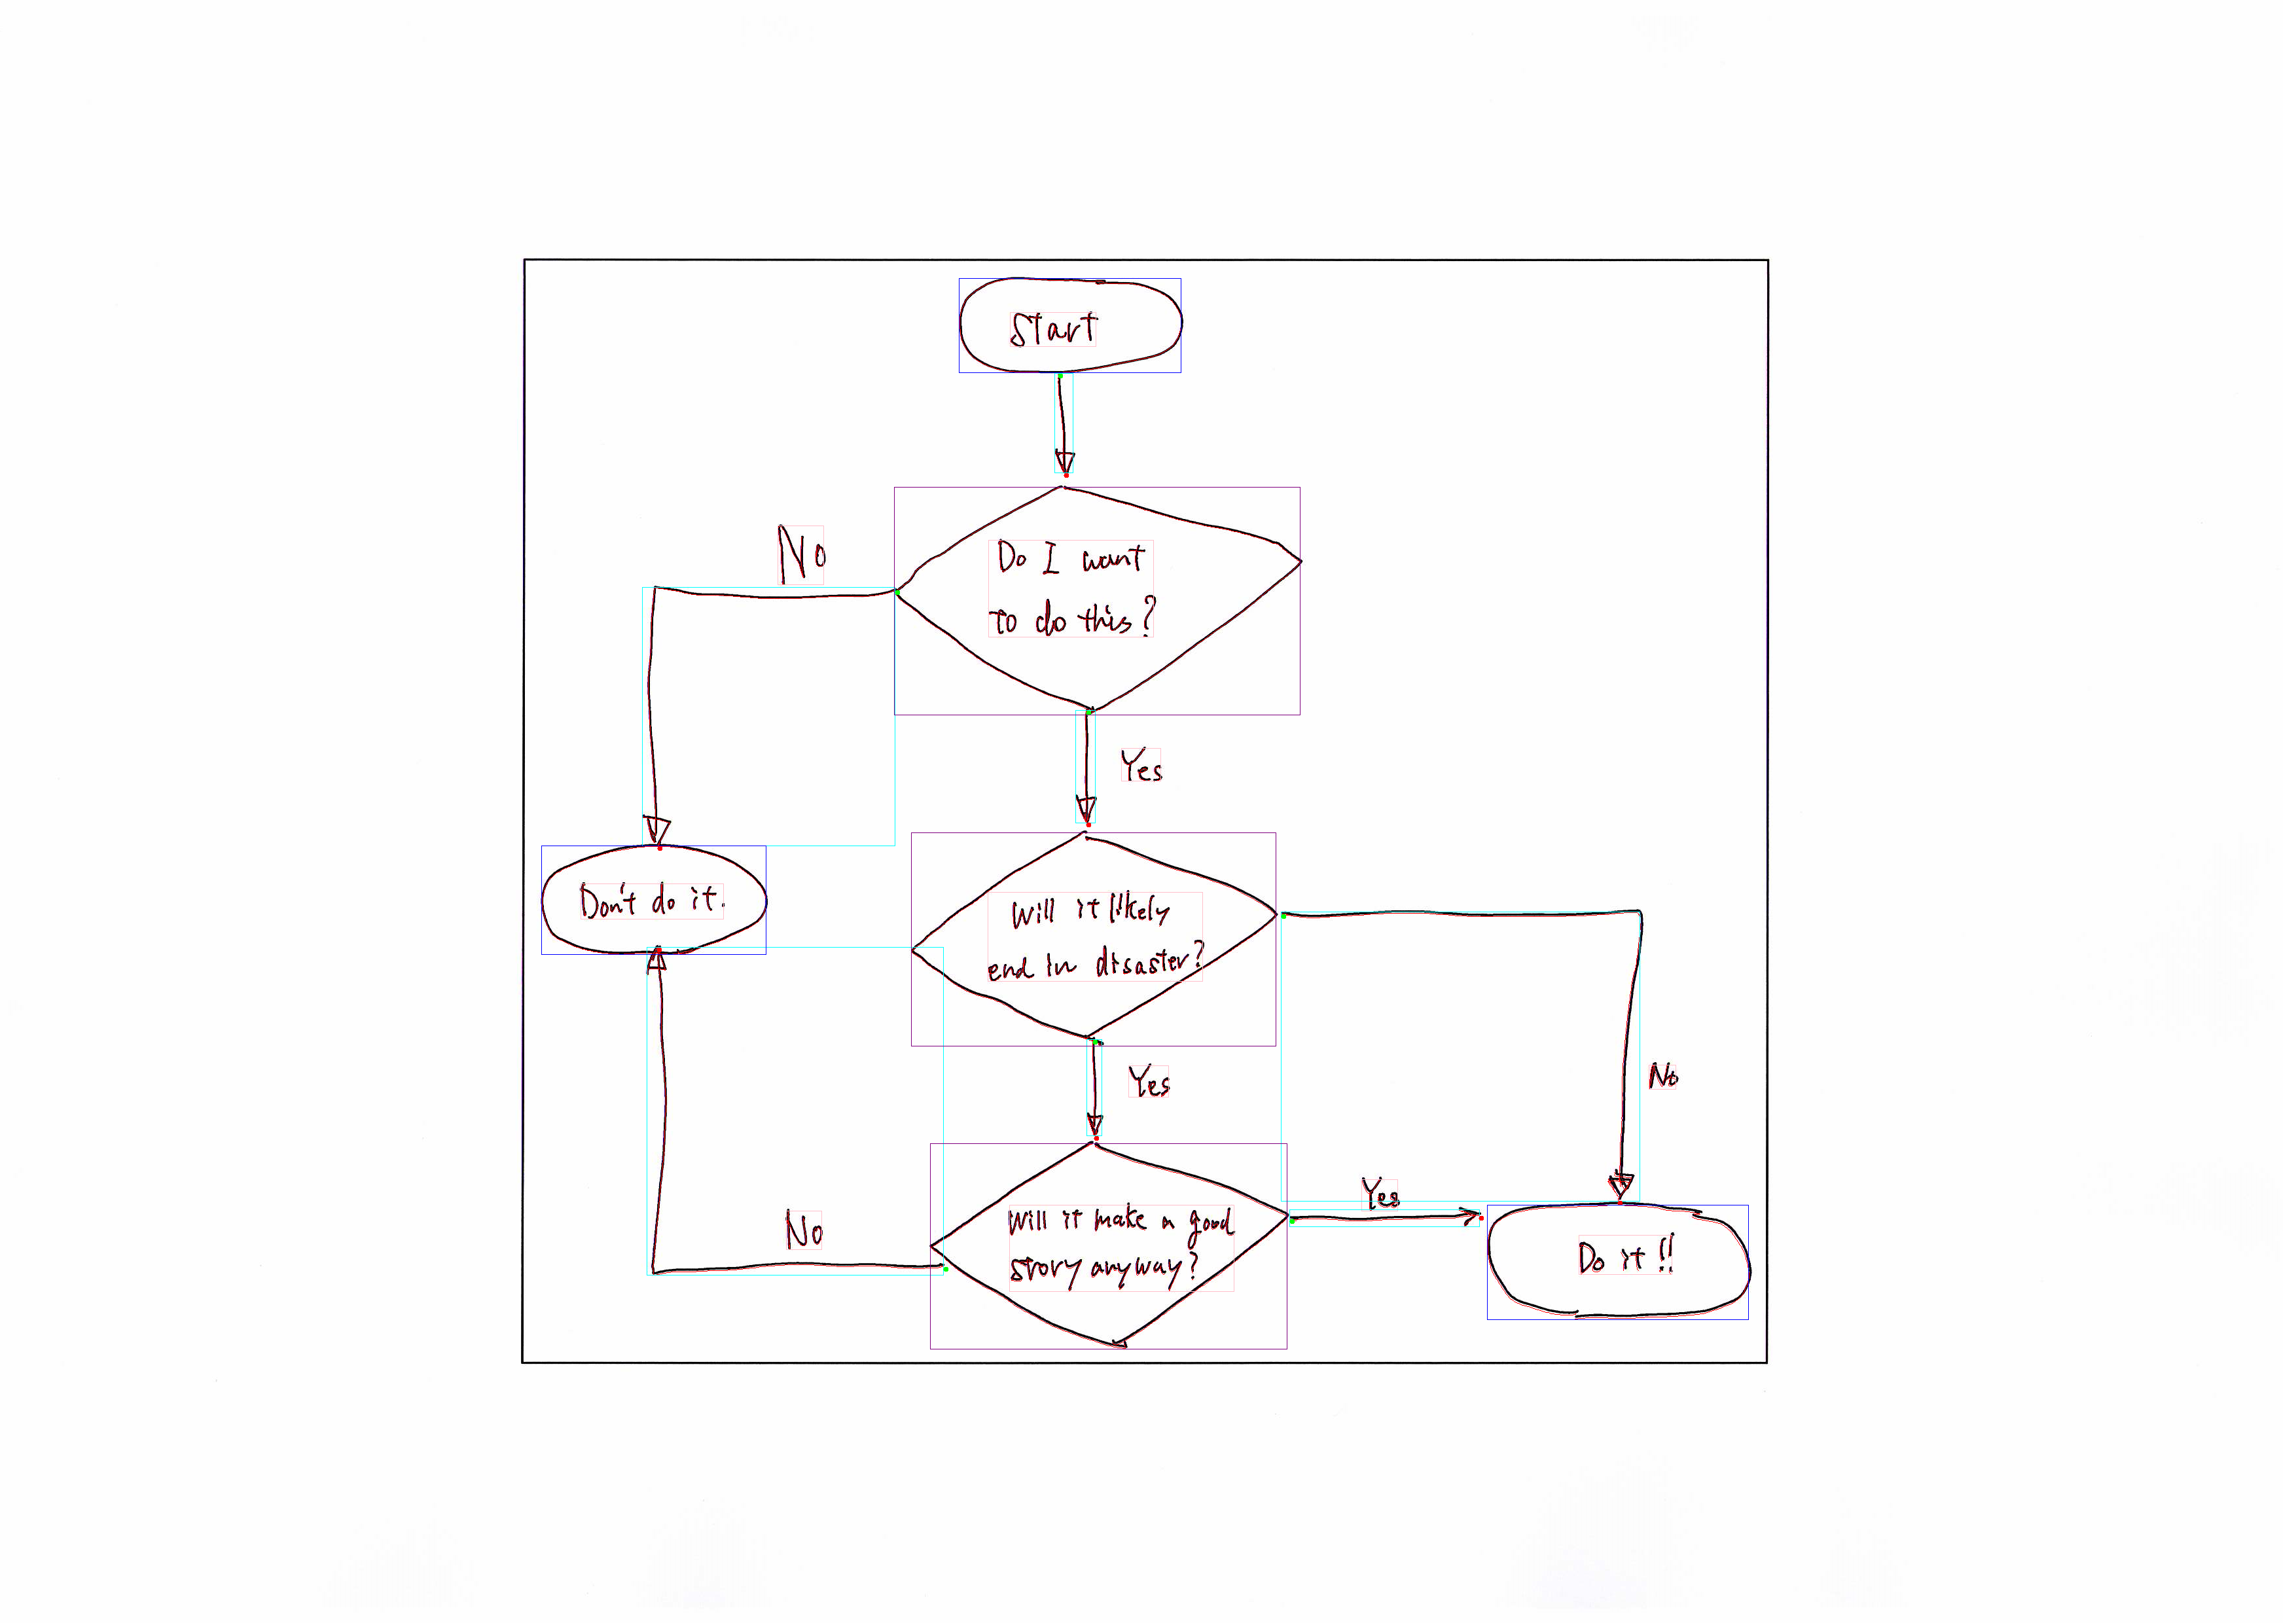 Start
No
Do I want
to do this?
Yes
Don't do it.
Will it likely
end in disaster?
Yes
No
No
Will it make a good
story anyway?
Yes
Do it!!